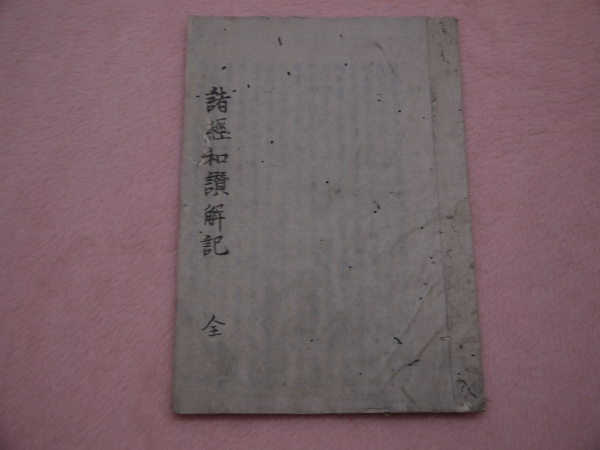 諸經和讃解記 全